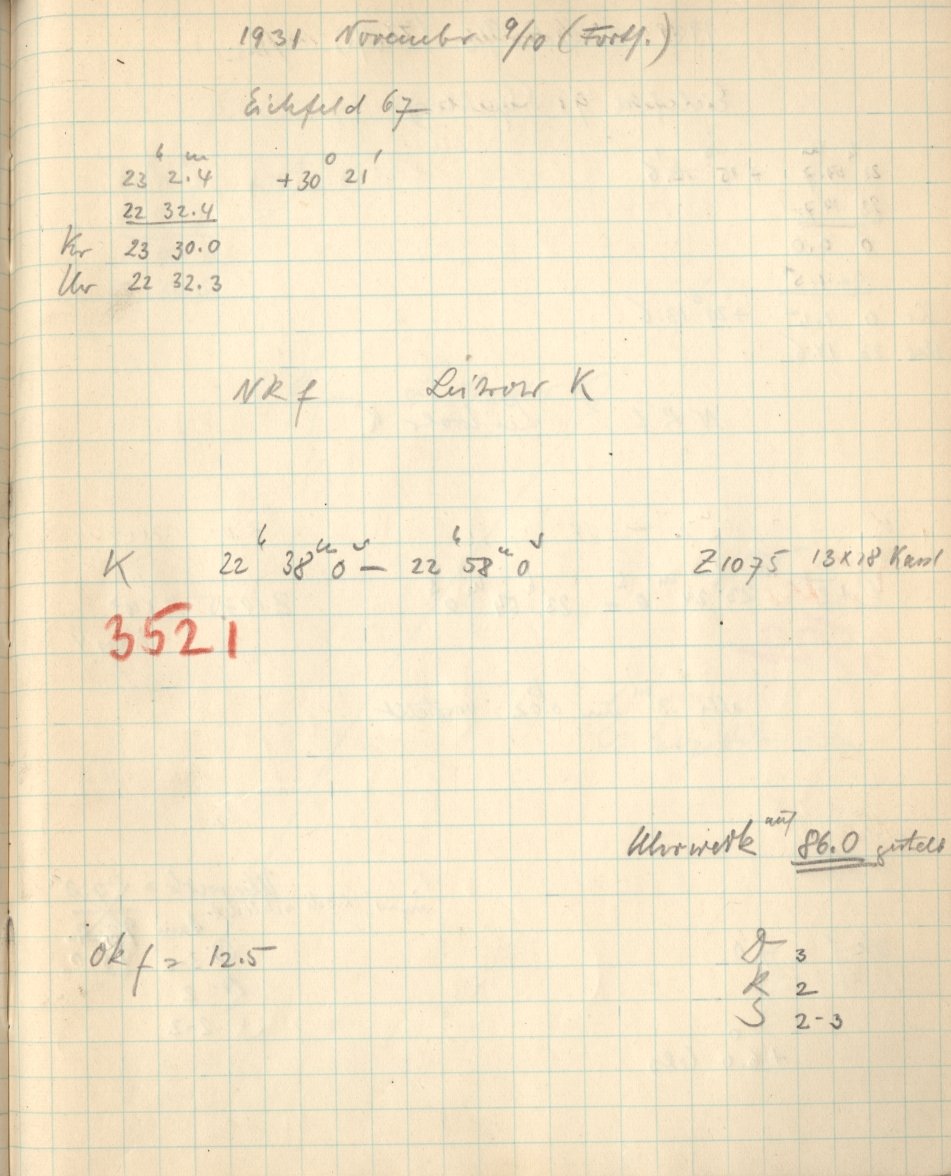 1931 November 9/10 (Forts.)
Eichfeld 67
23ʰ 2.4ᵐ +30° 21'
22 32.4
Kr 23 30.0
Uhr 22 32.3
NRf K
K 22ʰ 38ᵐ 0ˢ – 22ʰ 58ᵐ 0ˢ Z1075 13x18
3521
Uhrwerk auf 86.0 gestellt
Ok f = 12.5
D 3
R 2
S 2-3